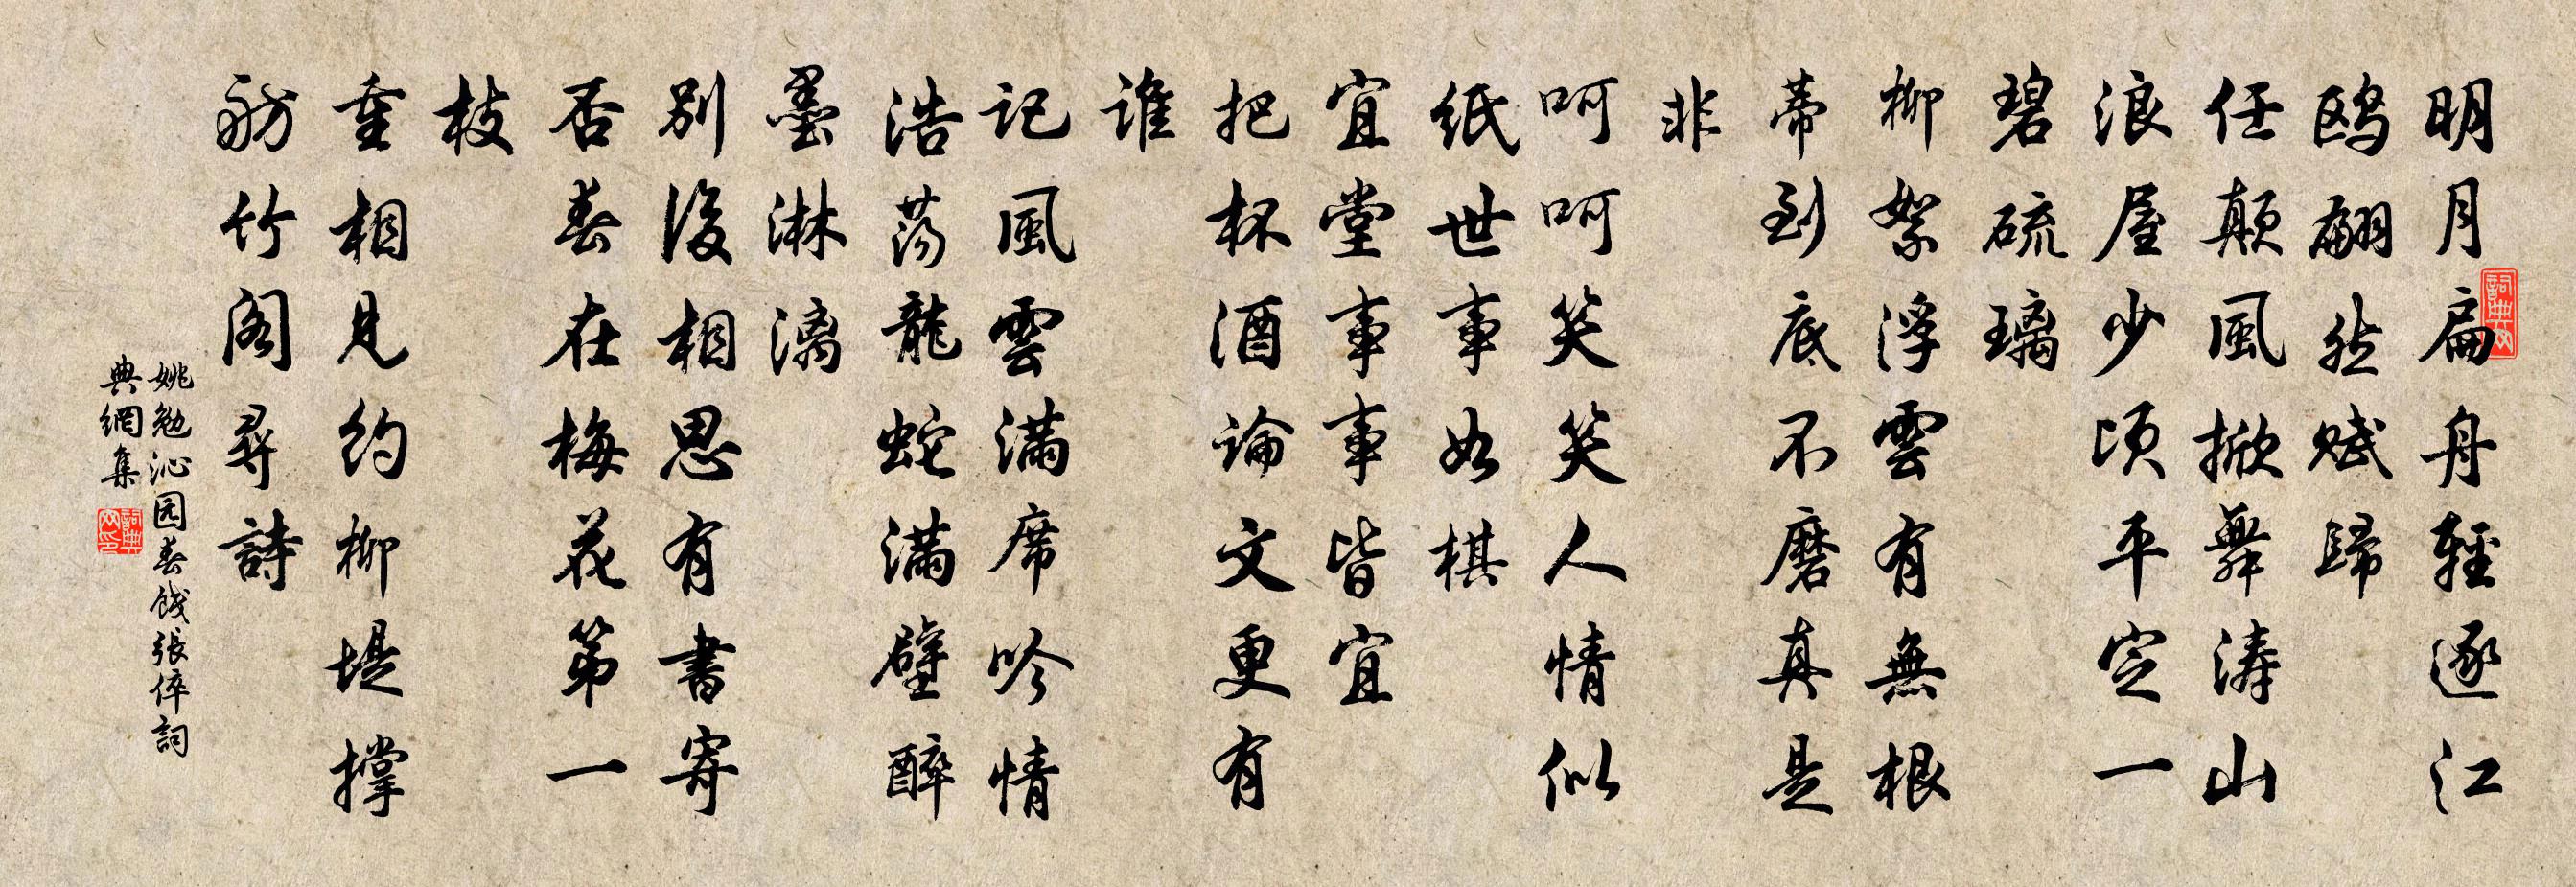 明月扁舟轻逐江
鸥翩然赋歸
任颠風掀舞涛山
浪屋少顷平定一
碧硫璃
柳絮浮雲有無根
蒂到底不磨真是
非
呵呵笑笑人情似
纸世事如棋
宜堂事事皆宜
把杯酒論文更有
谁
记風雲满席吟情
浩荡龍蛇满壁醉
墨淋漓
别後相思有書寄
否春在梅花第一
枝
重相見约柳堤撑
舫竹阁尋詩
姚勉沁园春饯張倅詞
典網集
詞典网
詞典网印